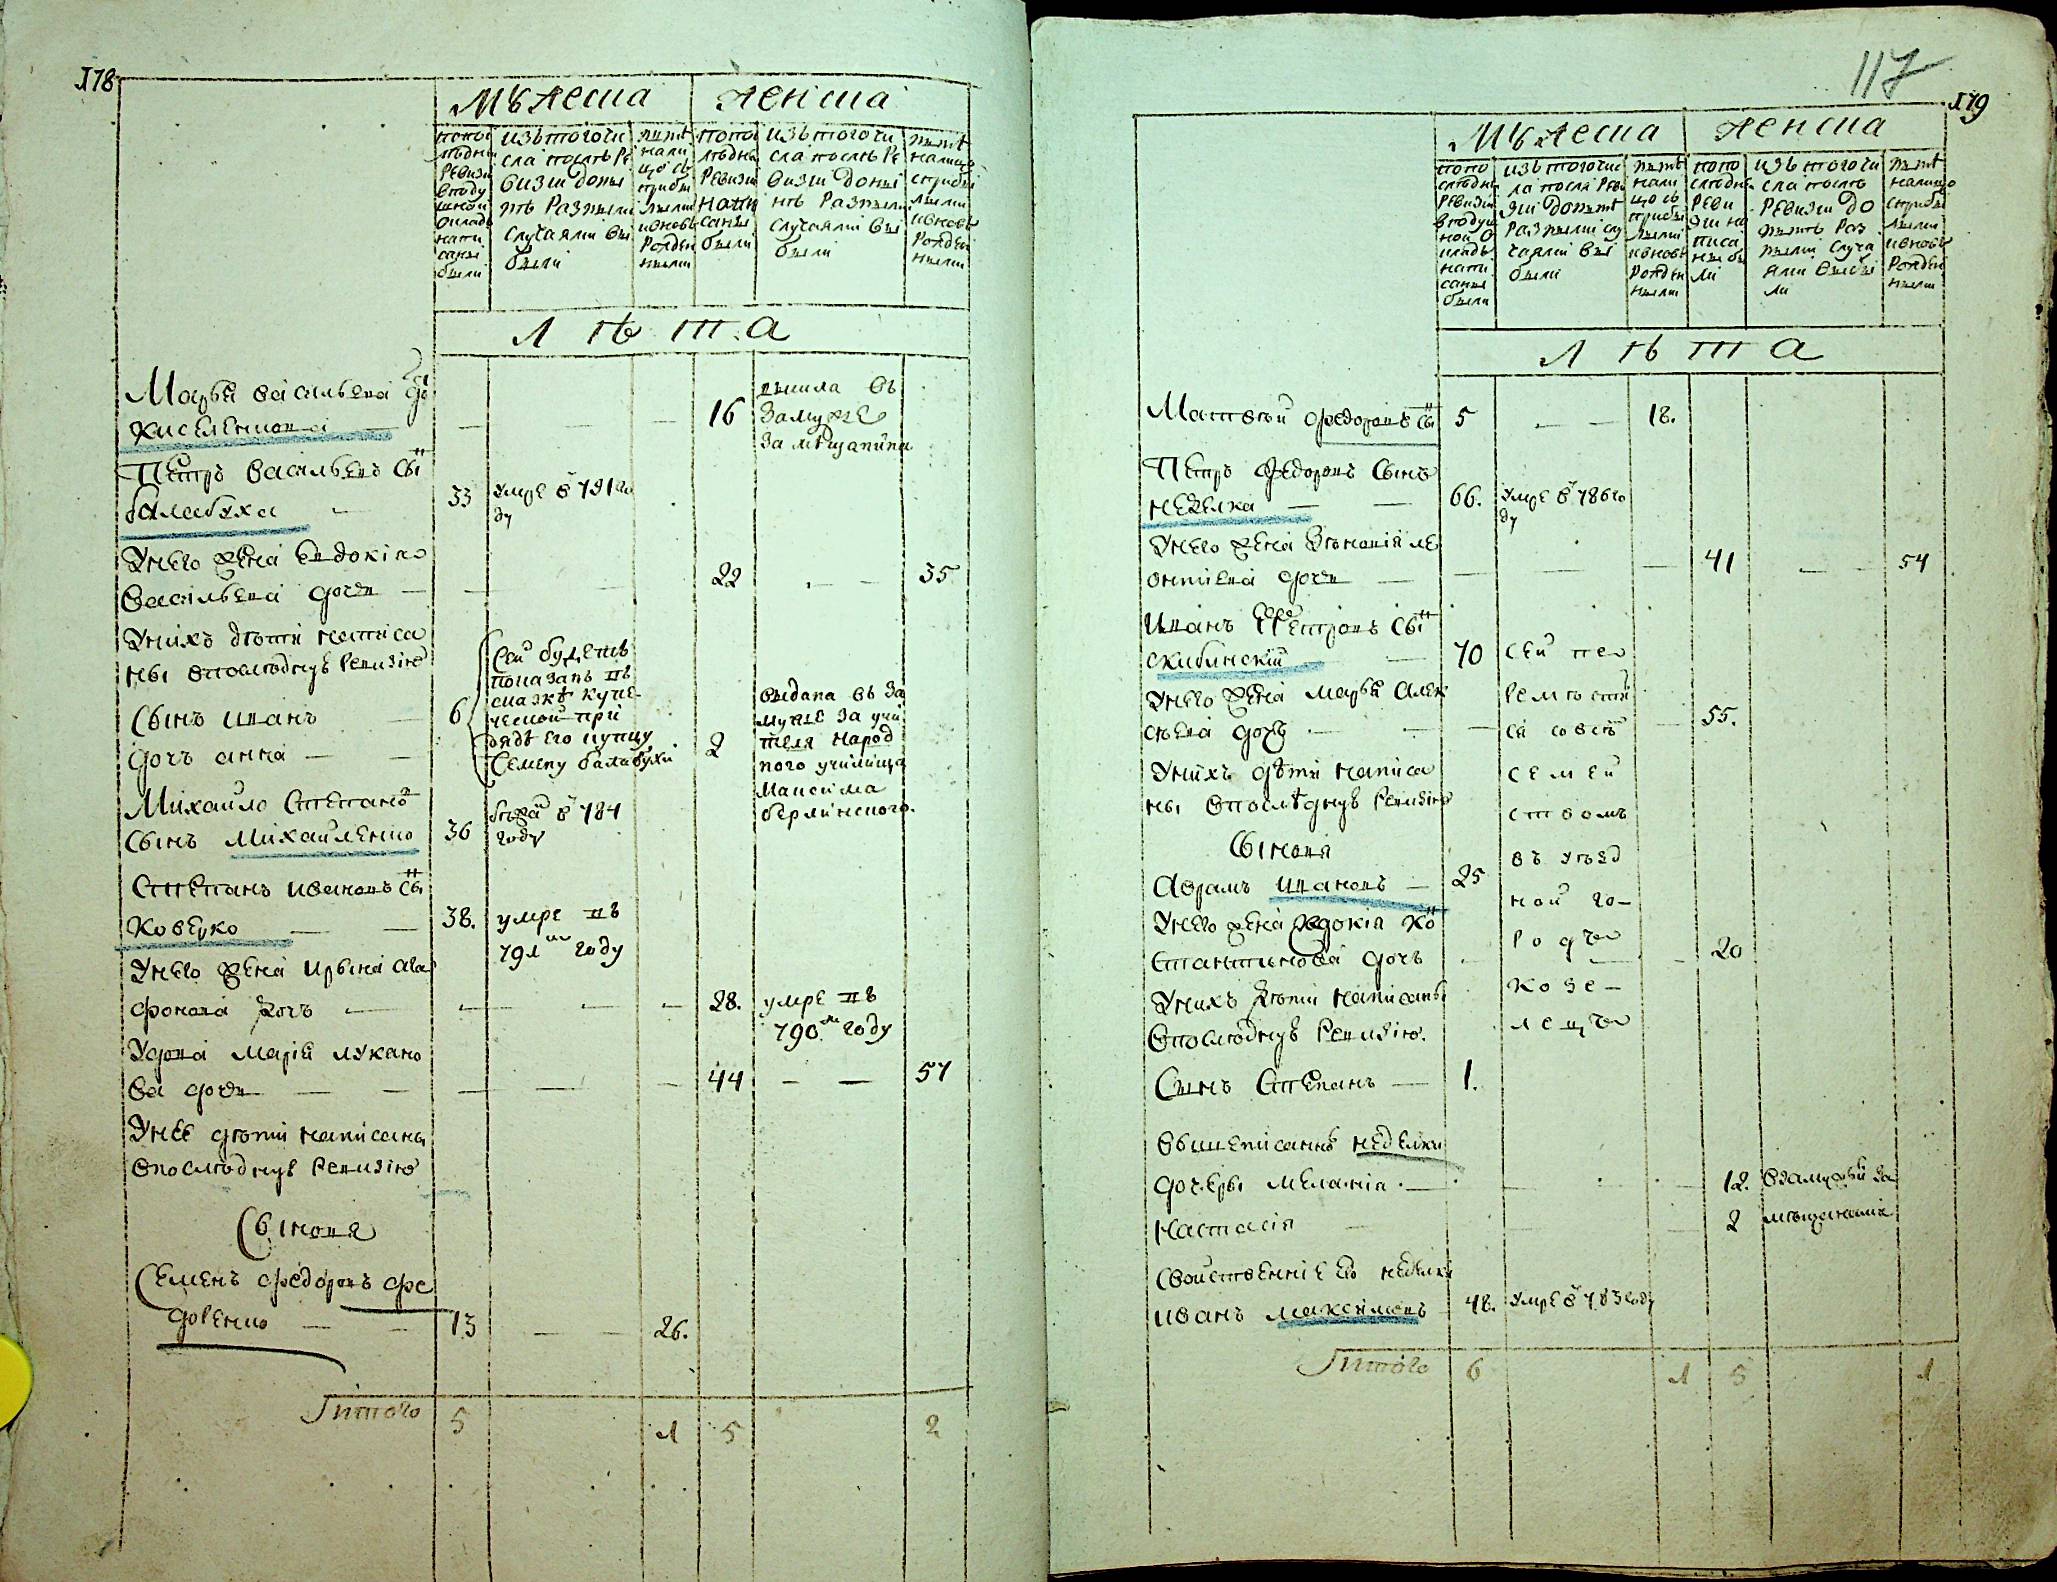 178
Мужеска
Женска
попос
лѣдней
ревизи
вподу
шной
окладъ
напи
саны
были
изъ того чи
сла послѣ Ре
визіи доны
нѣ Разными
случаями вы
были
нынѣ
нали
цо съ
прибы
лыми
ивновь
Рожден
ными
попо
лѣдней
Ревизи
напи
саны
были
изъ того чи
сла послѣ Ре
визіи доны
нѣ Разными
случаями вы
были
нынѣ
налицо
сприбы
лыми
ивновь
Рожден
ными
Лѣта
Марья васильева до
Киселенкова
16
вышла въ
замуже
за мѣщанина
Петръ васильевъ сы
балабуха
33
умре в 791 го
ду
Унего жена Евдокія
васильева дочь
22
35
Унихъ дѣти написа
ны впослѣднуъ Ревизію
Сынъ иванъ
6
Сей будетъ
показанъ въ
сказкѣ купе
ческой при
дядѣ его купцу
Семену балабухи
дочь анна
2
выдана въ за
муже за учи
теля народ
ного училища
Максима
берлинского.
Михайло Степановъ
Сынъ Михайленко
36
бежа в 784
году
Степанъ ивановъ сы
Коверко
38.
умре въ
791 году
Унего жена ирына ага
фонова дочь
28.
умре въ
790 году
Удова Марія лукано
ва дочь
44
57
Унее дѣти написаны
впослѣднуъ Ревизію
Сыновя
Семенъ федоровъ фе
доренко
13
26.
Итого
5
1
5
2
117
179
Мужеска
Женска
попо
слѣдней
Ревизи
вподуш
ной о
кладъ
напи
саны
были
изъ того чис
ла посля Реви
зіи донынѣ
Разными слу
чаями вы
были
нынѣ
нали
цо съ
прибы
лыми
ивновь
Рожден
ными
попо
слѣдне
Реви
зіи на
писа
ны бы
ли
изъ того чи
сла послѣ
Ревизіи до
нынѣ Раз
ными случа
ями выбы
ли
нынѣ
налицо
сприбы
лыми
ивновь
Рожден
ными
Лѣта
Матвей федоровъ сы
5
18.
Петръ федоровъ Сынъ
неделка
66.
умре в 786 го
ду
Унего жена Ѳеѡнія ле
онтіева дочь
41
54
Иванъ Петровъ сы
скибинскій
70
Сей пе
Унего жена марья алек
сеева дочь
55.
ремести
ся совсѣ
Унихъ дѣти написа
ны впослѣднуъ Ревизію
семей
ством
Сыновя
въ уезд
Аврамъ ивановъ
25
ной го-
Унего жена Евдокія Ко
стантинова дочь
20
родче
Унихъ дѣти написаны
впослѣднуъ Ревизію.
козе-
лецче
Сынъ Степанъ
1.
вышеписаннѣ неделки
дочери меланія
12.
взамужей за
настасія
2
мѣщанами
Свойственніе его неделки
иванъ максимовъ
48.
умре в 783 году
Итого
6
1
5
1